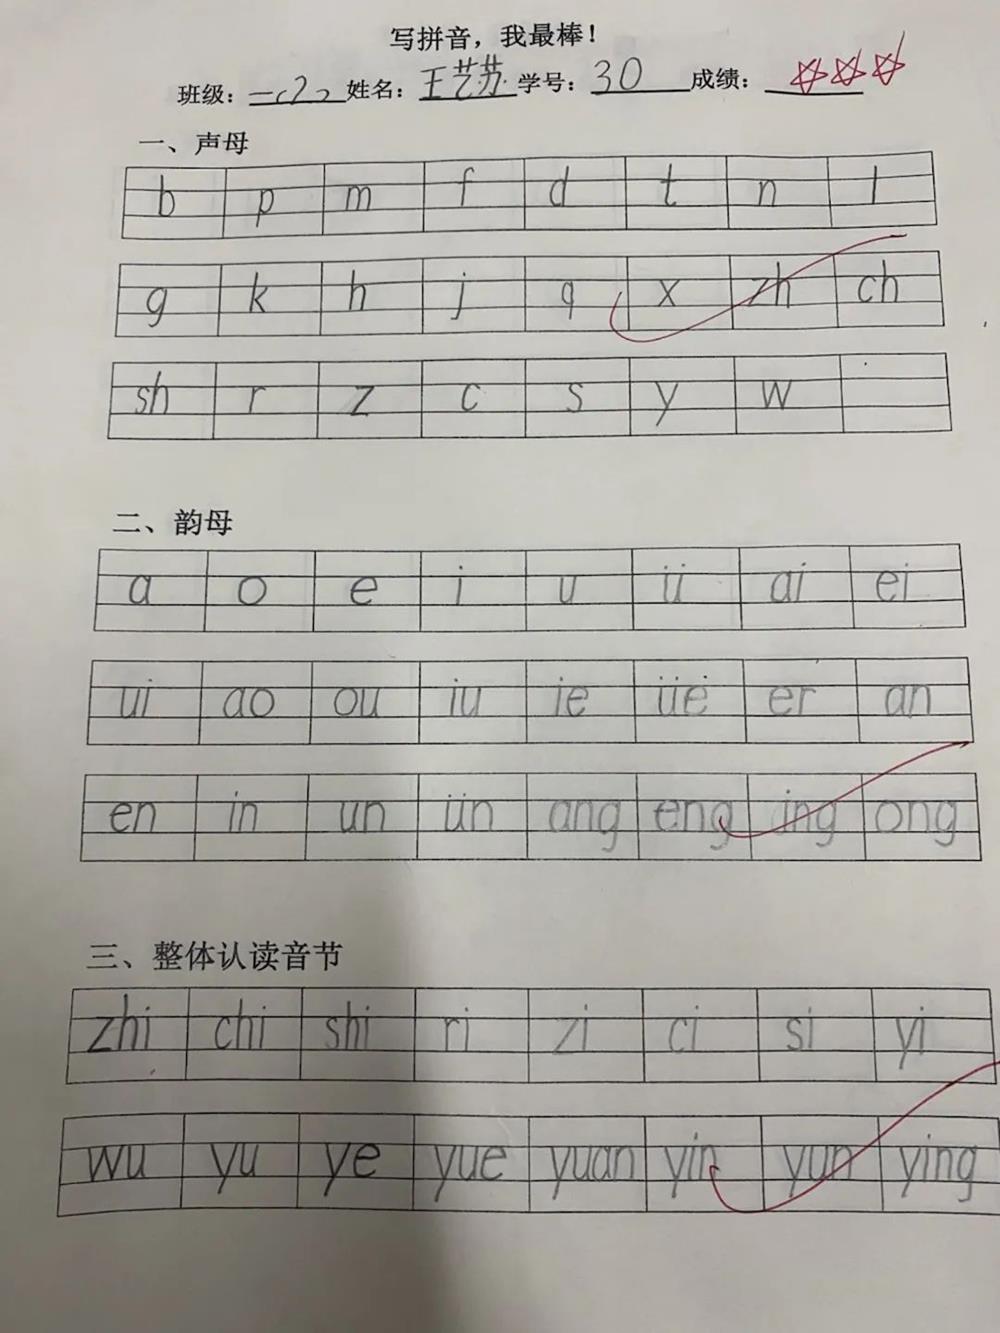 写拼音，我最棒！
班级：一（2） 姓名：王艺苏 学号：30 成绩：
一、声母
b p m f d t n l
g k h j q x zh ch
sh r z c s y w
二、韵母
a o e i u ü ai ei
ui ao ou iu ie üe er an
en in un ün ang eng ing ong
三、整体认读音节
zhi chi shi ri zi ci si yi
wu yu ye yue yuan yin yun ying